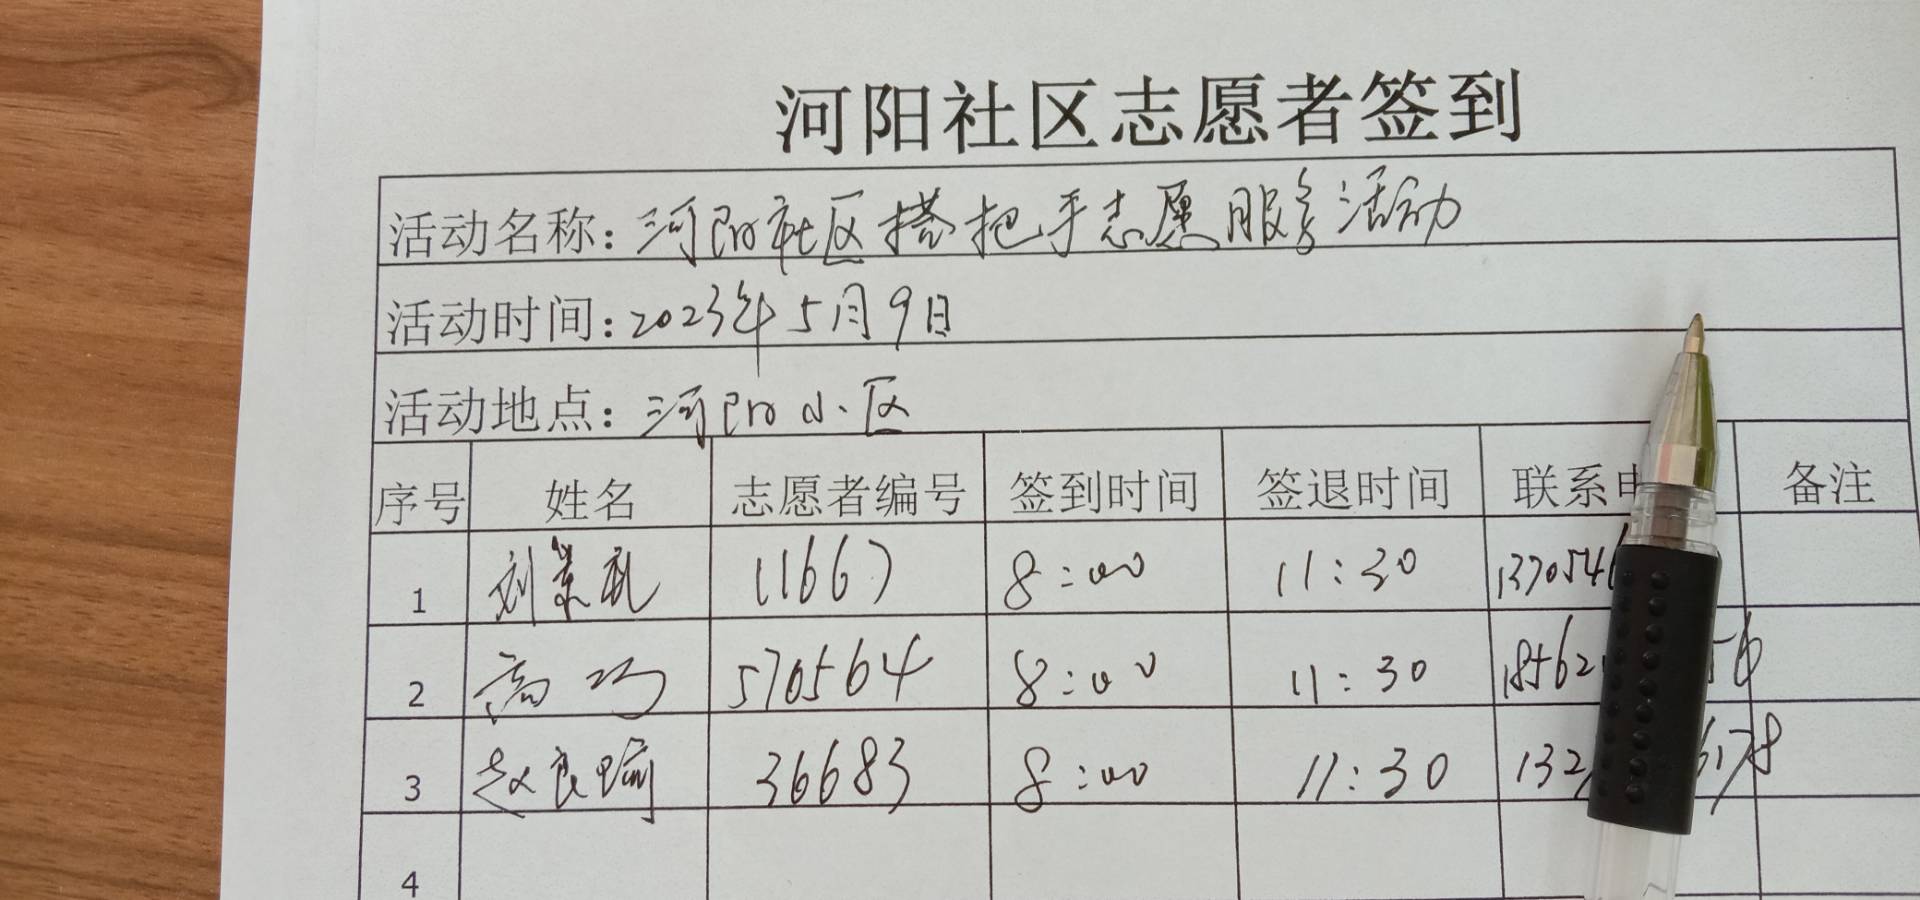 河阳社区志愿者签到
活动名称：河阳社区搭把手志愿服务活动
活动时间：2023年5月9日
活动地点：河阳小区
序号 姓名 志愿者编号 签到时间 签退时间 联系 备注
1 刘 11667 8:00 11:30 137054
2 高巧 570564 8:00 11:30 18562 56
3 赵良瑜 36683 8:00 11:30 132 6178
4